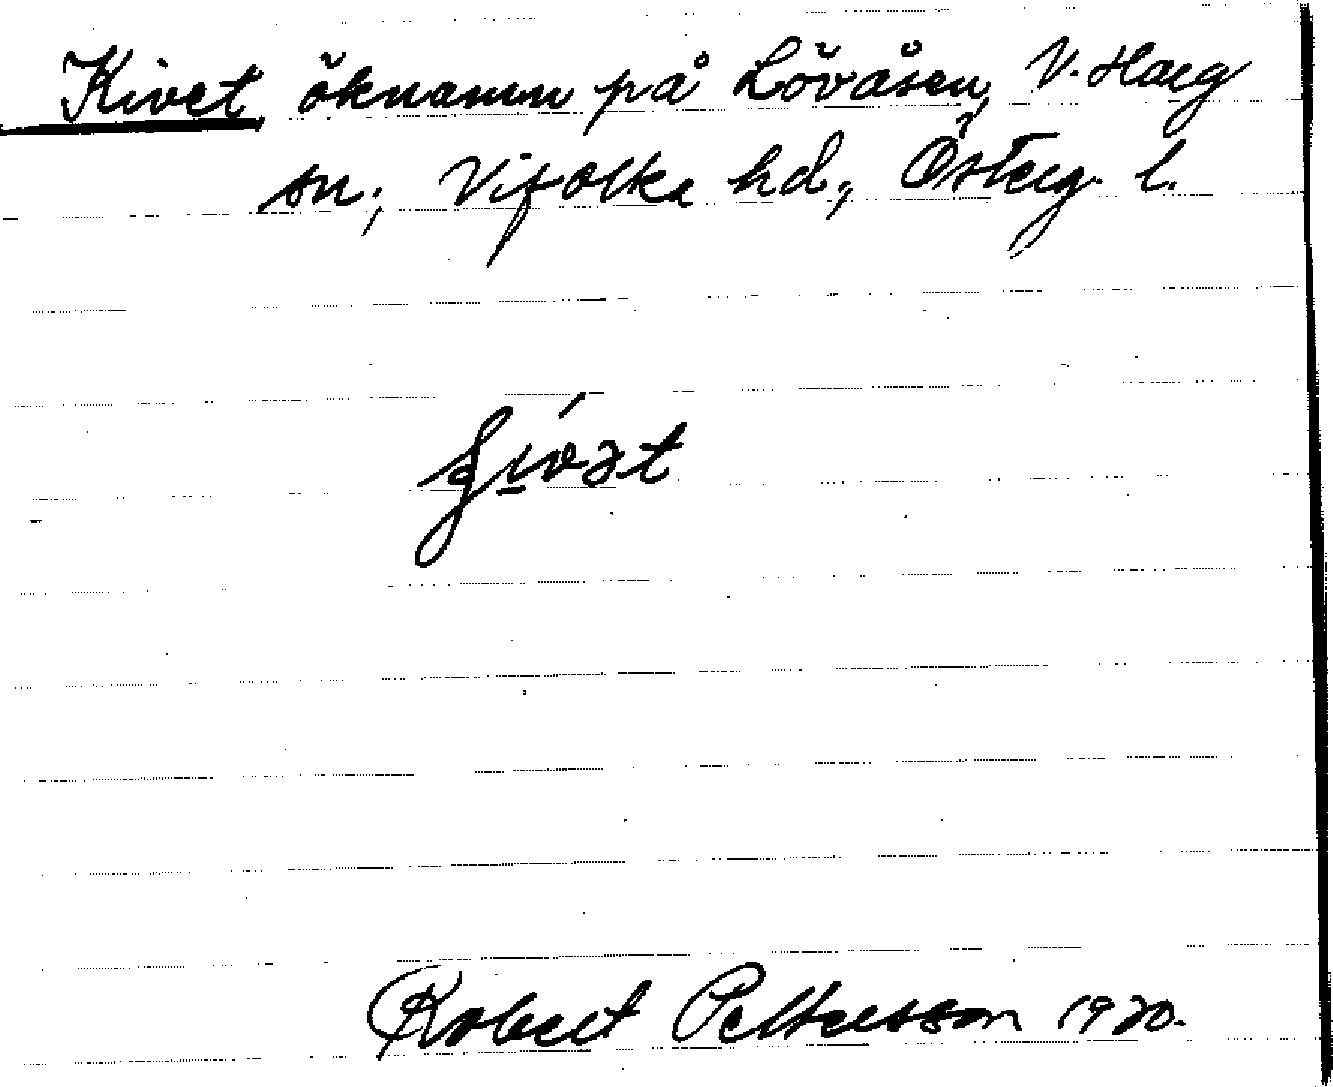 Kivet, öknamn på Lövåsen, V. Harg
sn; Vifolka hd., Österg. l.
Robert Pettersson 1920.